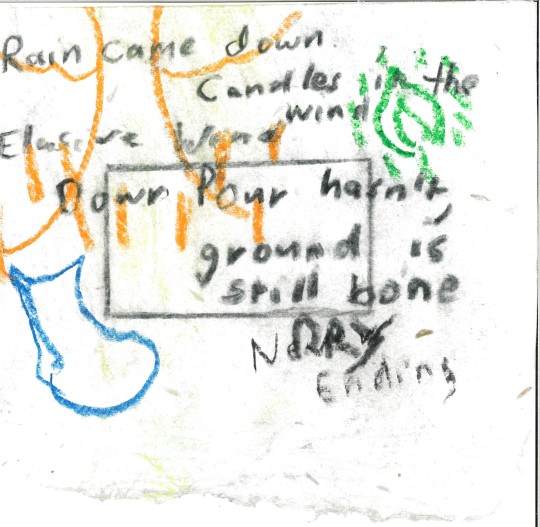 Rain came down
Candles in the
wind
Elusive Wand
Down Pour hasn't
ground is
still bone
DRRY
Ending